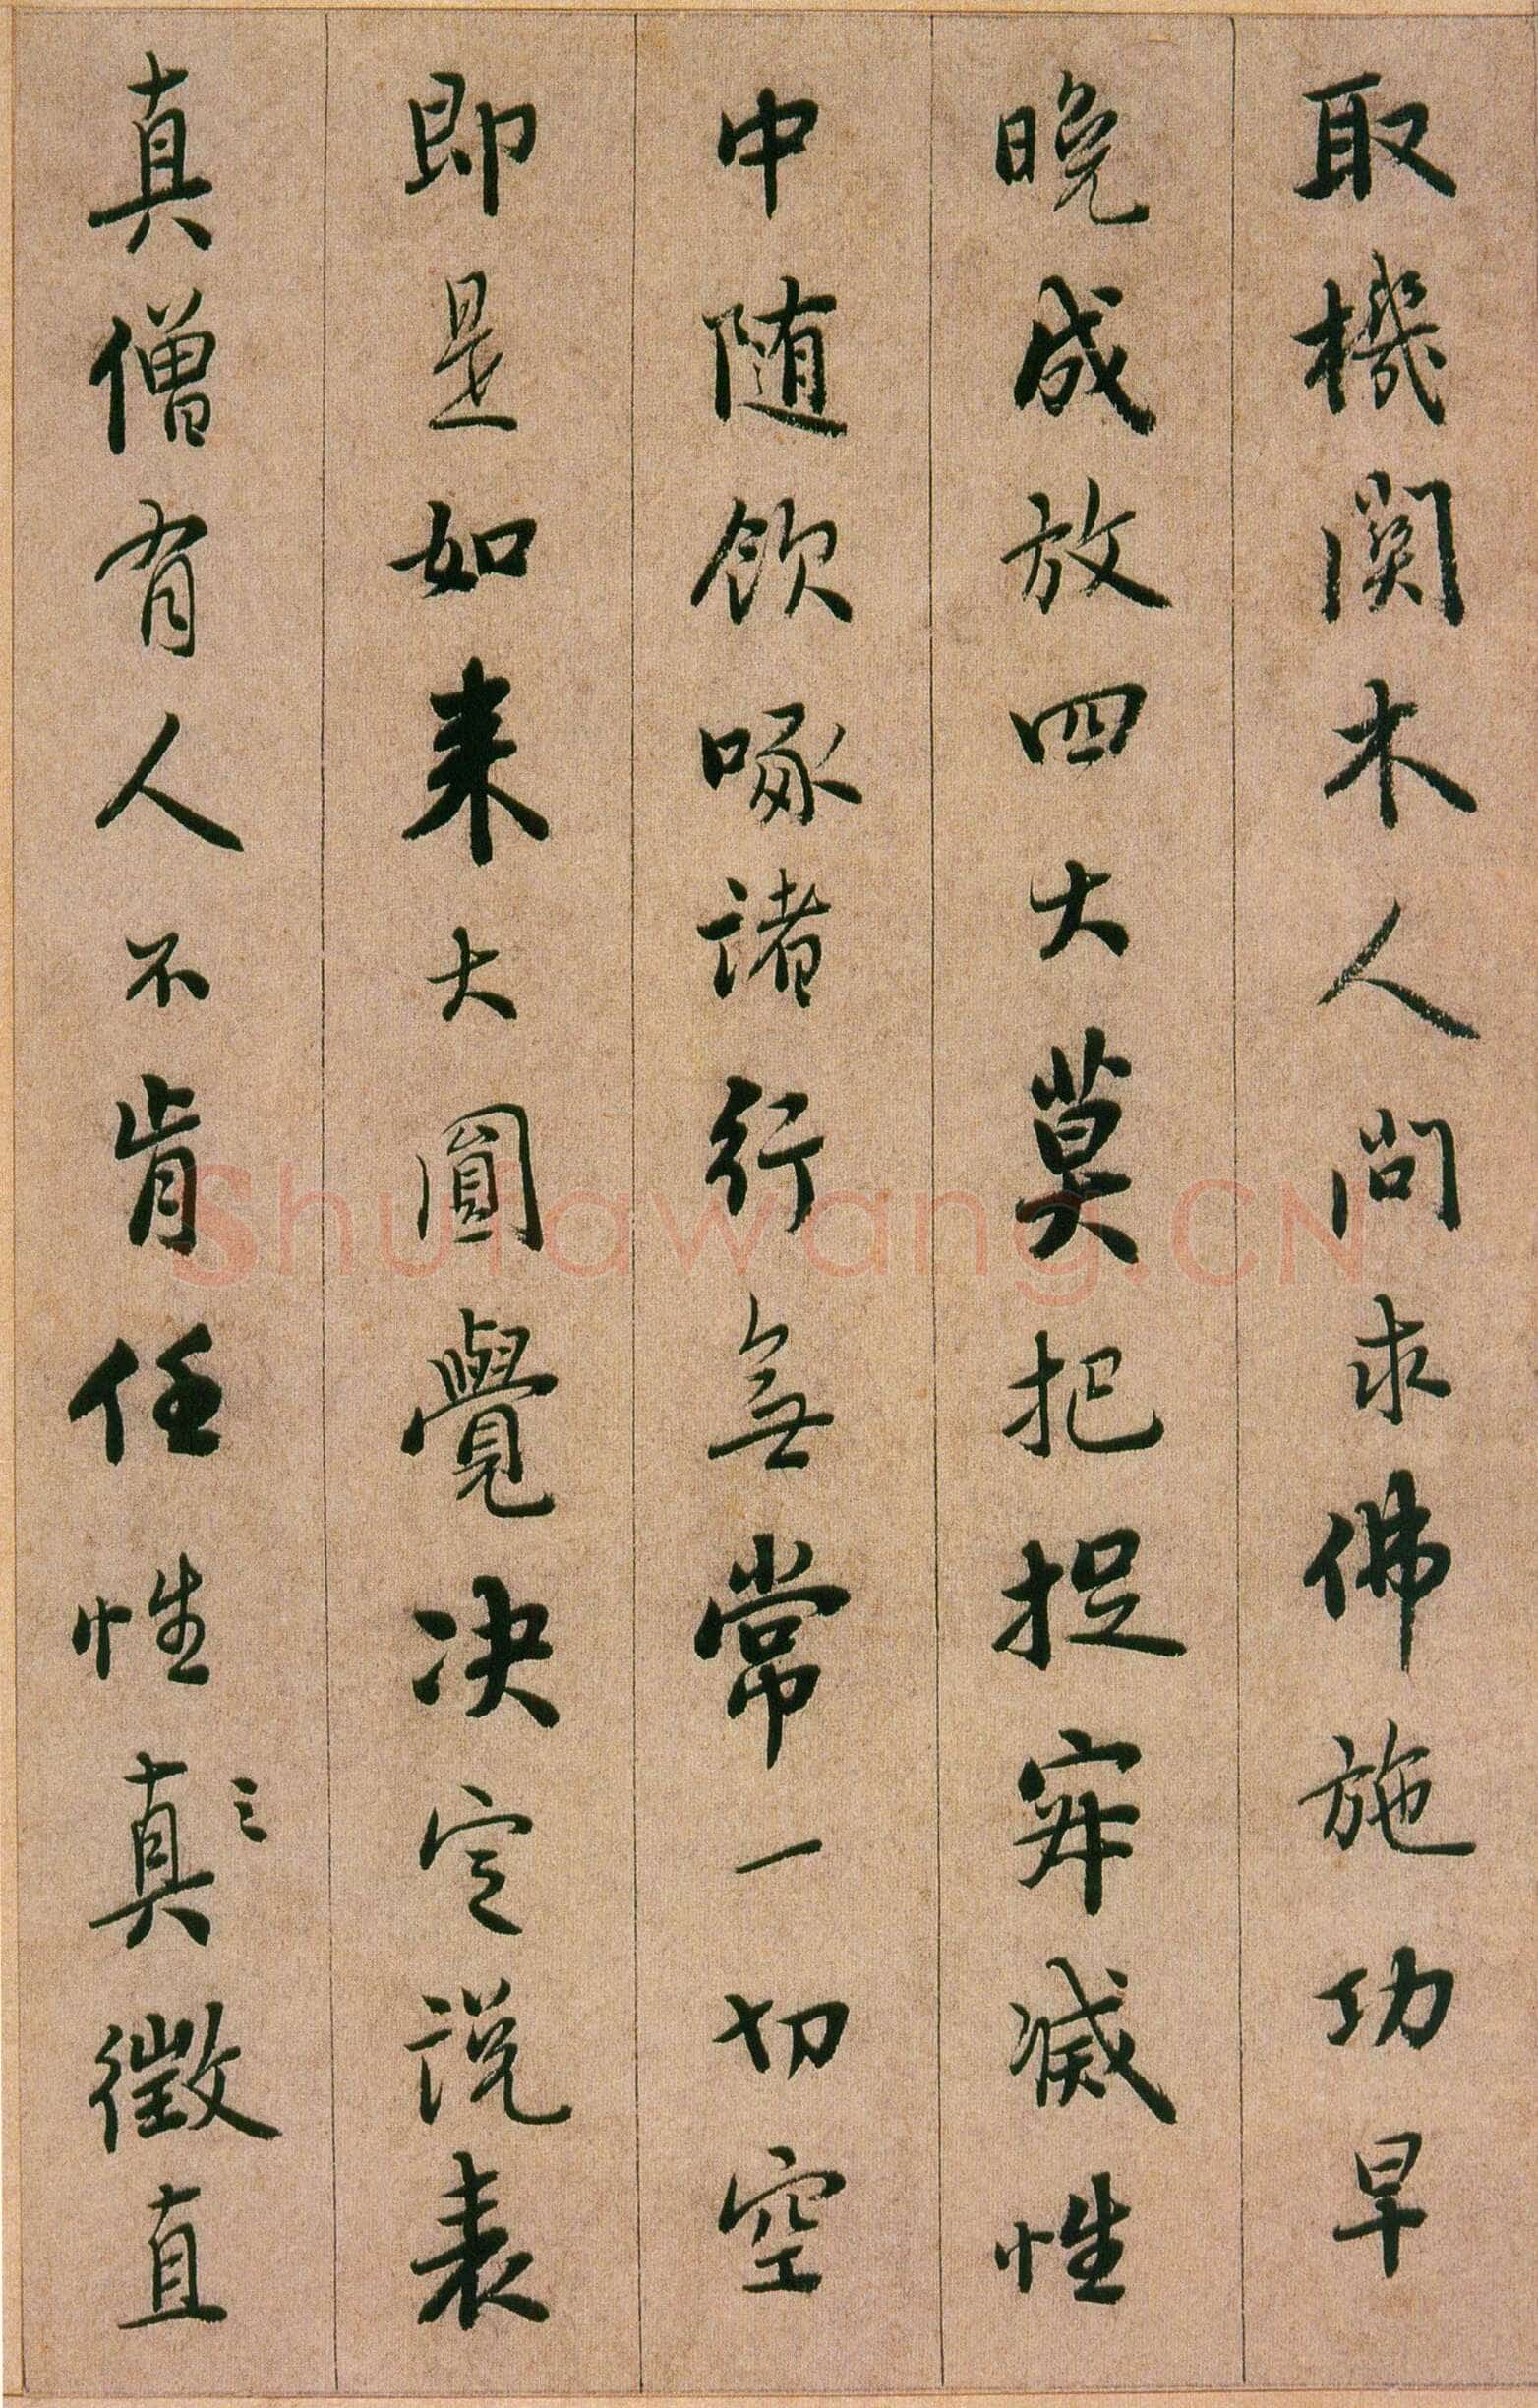 取機関木人問求佛施功早
晚成放四大莫把捉穽滅性
中随飲啄諸行無常一切空
即是如来大圓覺決定說表
真僧有人不肯任性真徵直
三
Shufawang.CN